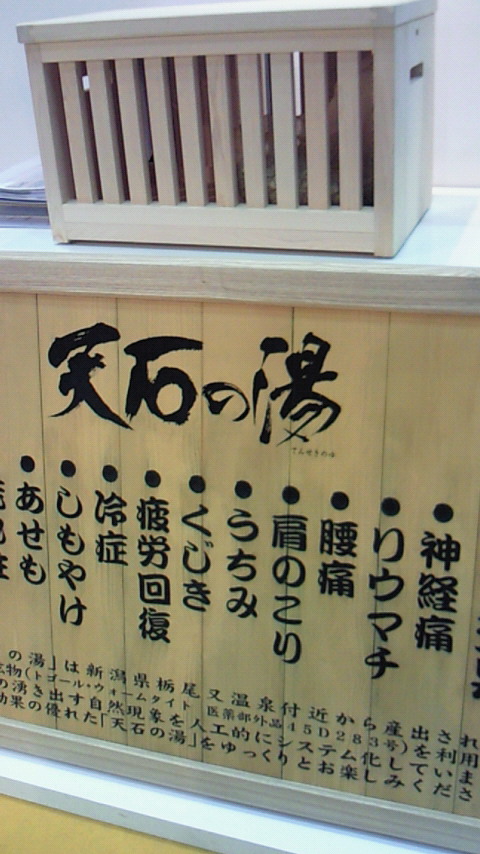 天石の湯
てんせきのゆ
●神経痛
●リウマチ
●腰痛
●肩のこり
●うちみ
●くじき
●疲労回復
●冷症
●しもやけ
●あせも
の湯」は新潟県栃尾又温泉付近から産出され
鉱物(トゴール・ウォームタイト 医薬部外品45D283号)を利用
の湧き出す自然現象を人工的にシステム化していま
効果の優れた「天石の湯」をゆっくりとお楽しみくださ